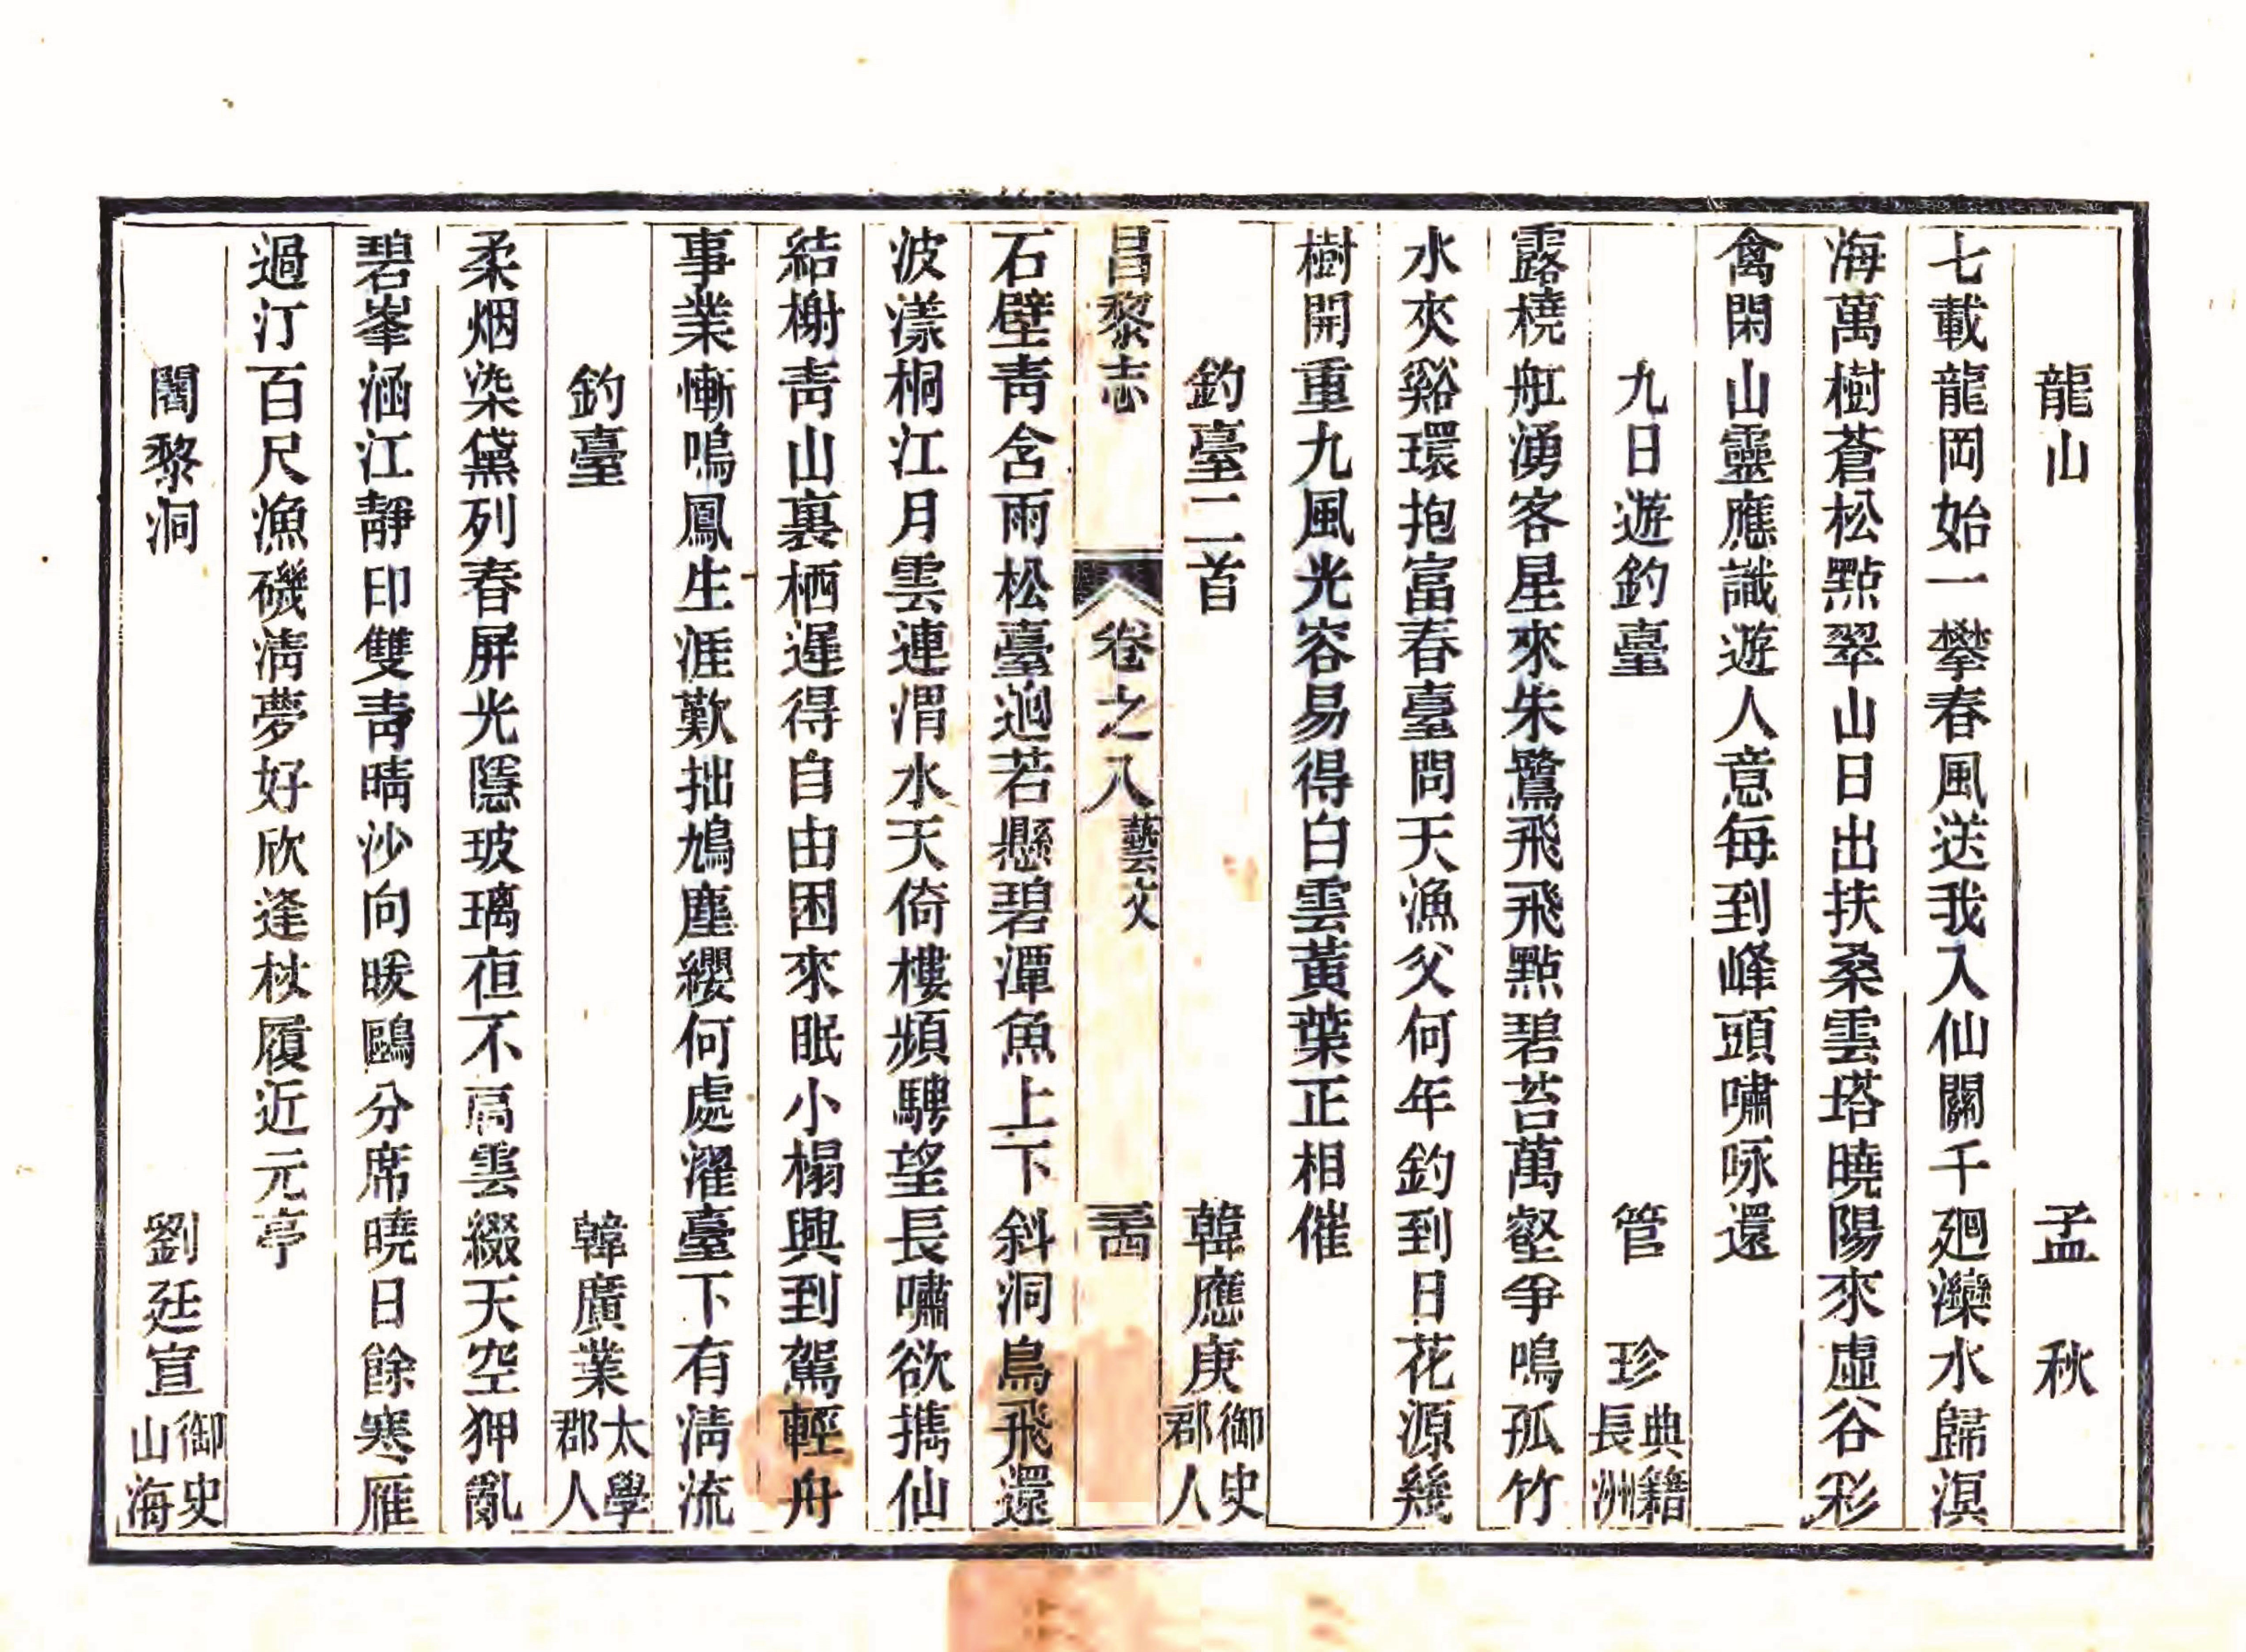 龍山 孟秋
七載龍岡始一攀春風送我入仙關千廻灤水歸溟
海萬樹蒼松點翠山日出扶桑雲塔曉陽來虛谷彩
禽閑山靈應識遊人意每到峰頭嘯咏還
九日遊釣臺 管珍典籍長洲
露橈舡湧客星來朱鷺飛飛點碧苔萬壑爭鳴孤竹
水夾谿環抱富春臺問天漁父何年釣到日花源幾
樹開重九風光容易得白雲黃葉正相催
釣臺二首 韓應庚御史郡人
昌黎志 卷之八藝文
石壁靑含雨松臺逈若懸碧潭魚上下斜洞鳥飛還
波漾桐江月雲連渭水天倚樓頻騁望長嘯欲攜仙
結榭靑山裏栖遲得自由困來眠小榻興到駕輕舟
事業慚鳴鳳生涯歎拙鳩塵纓何處濯臺下有淸流
釣臺 韓廣業太學郡人
柔烟染黛列春屏光隱玻璃夜不扃雲綴天空狎亂
碧峯涵江靜印雙靑晴沙向暖鷗分席曉日餘寒雁
過汀百尺漁磯淸夢好欣逢杖履近元亭
闍黎洞 劉廷宣御史山海